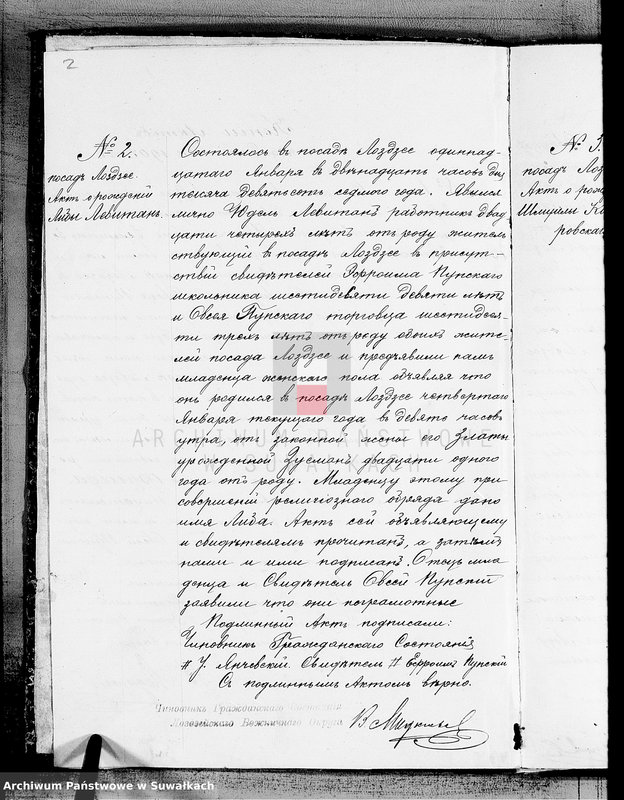 2
№ 2.
посадъ Лоздзее.
Актъ о рожденiи
Лиды Левитанъ.
Состоялось въ посадѣ Лоздзее одиннад-
цатаго Января въ двѣнадцать часовъ дня
тысяча девятьсотъ седмого года. Явился
лично Юдель Левитанъ работникъ двад
цати четырехъ лѣтъ отъ роду житель
ствующiй въ посадѣ Лоздзее въ присут-
ствiй свидѣтелей Эфроима Купскаго
школьника шестидесяти девяти лѣтъ
и Овсея Купскаго торговца шестидеся-
ти трехъ лѣтъ отъ роду обоихъ жите-
лей посада Лоздзее и предъявили намъ
младенца женскаго пола объявляя что
онъ родился въ посадѣ Лоздзее четвертаго
Января текущаго года въ девять часовъ
утра, отъ законной жены его Златы
урожденной Зусманъ двадцати одного
года отъ роду. Младенцу этому при
совершенiй религiознаго обряда дано
имя Лида. Актъ сей объявляющему
и свидѣтелямъ прочитанъ, а затѣмъ
нами и ими подписанъ. Отецъ мла
денца и Свидѣтель Овсей Купскiй
заявили что они неграмотные
Подлинный Актъ подписали:
Чиновникъ Гражданскаго Состоянiя
У. Янчевскiй. Свидѣтель Ефроимъ Купскiй
Съ подлиннымъ Актомъ вѣрно.
Чиновникъ Гражданскаго Состоянiя
Лоздзейскаго Божничнаго Округа
№ 3.
посадъ Лоз
Актъ о рожд
Шмуеля Ко
ровскаго
ARCHIWUM PAŃSTWOWE
W SUWAŁKACH
Archiwum Państwowe w Suwałkach